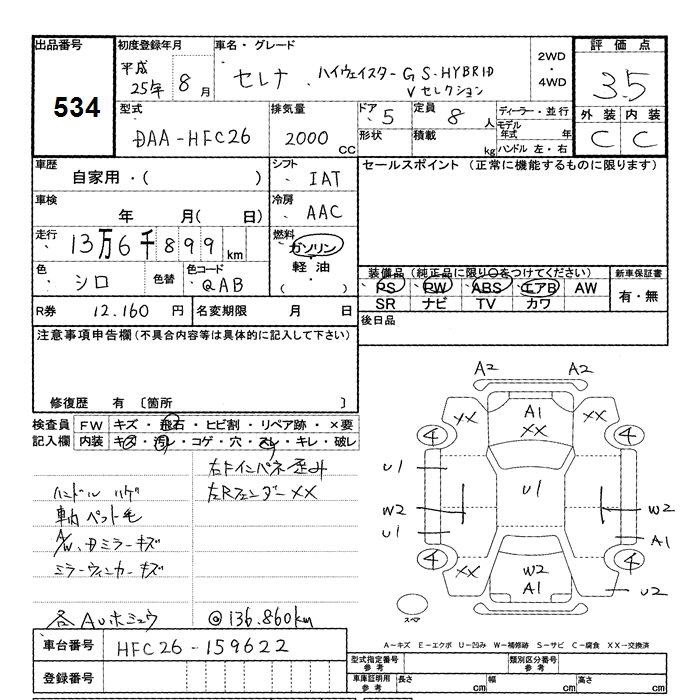 出品番号 初度登録年月 車名・グレード 2WD・4WD 評価点
534 平成25年 8月 セレナ ハイウェイスターGS-HYBRID Vセレクション 3.5
型式 排気量 ドア 5 定員 8人 ディーラー・並行 外装 内装
DAA-HFC26 2000CC 形状 積載 kg モデル年式 年 C C
ハンドル 左・右
車歴 シフト セールスポイント (正常に機能するものに限ります)
自家用・( ) IAT
車検 冷房
年 月( 日) AAC
走行 燃料
13万6千899km ガソリン
軽油
( )
色 色替 色コード
シロ QAB
装備品 (純正品に限り○をつけてください) 新車保証書
PS PW ABS エアB AW 有・無
SR ナビ TV カワ
R券 12.160円 名変期限 月 日
後日品
注意事項申告欄 (不具合内容等は具体的に記入して下さい)
修復歴 有 〔箇所 〕
検査員記入欄 FW キズ・飛石・ヒビ割・リペア跡・×要
内装 キズ・汚レ・コゲ・穴・スレ・キレ・破レ
右Fインパネ歪み
ハンドルハゲ 左Rフェンダーxx
車内ペット毛
A/W、Dミラーキズ
ミラーウィンカーキズ
各AUホミュウ @136.860km
A2 A2
XX A1 XX XX
4 4
U1 U1
W2 W2
U1 A1
4 4
XX W2 A1 U2
スペア
A-キズ E-エクボ U-凹み W-補修跡 S-サビ C-腐食 XX-交換済
車台番号 HFC26-159622
型式指定番号 参考 類別区分番号 参考
登録番号
車庫証明用 参考 長さ cm 幅 cm 高さ cm